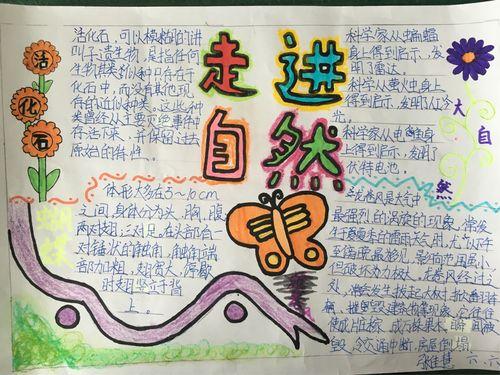 走进
自然
活
化
石
活化石,可以模糊的讲
叫孑遗生物,是指任何
生物其类似种只存在于
化石中,而没有其他现
存的近似种类,这些种
类曾经从主要灭绝事件
存活下来,并保留过去
原始的特性。
科学家从蝙蝠
身上得到启示,发
明了雷达。
科学家从萤火虫身上
得到启示,发明了人工冷
光。
科学家从电鱼身
上得到启示,发明了
伏特电池。
大
自
然
蝴
蝶
体形大多在5~10cm
之间,身体分为头,胸,腹
两对翅,三对足,在头部有一
对锤状的触角,触角端
部加粗,翅宽大,停歇
时翅竖立于背
上。
龙卷风
龙卷风是大气中
最强烈的涡旋的现象,常发
生于夏季的雷雨天气时,尤以下午
至傍晚最多见,影响范围虽小,
但破坏力极大。龙卷风经过之
处,常会发生拔起大树、掀翻车
辆、摧毁建筑物等现象,它往往
使成片庄稼、成万株果木瞬间被
毁,令交通中断,房屋倒塌
张佳慧 六.六